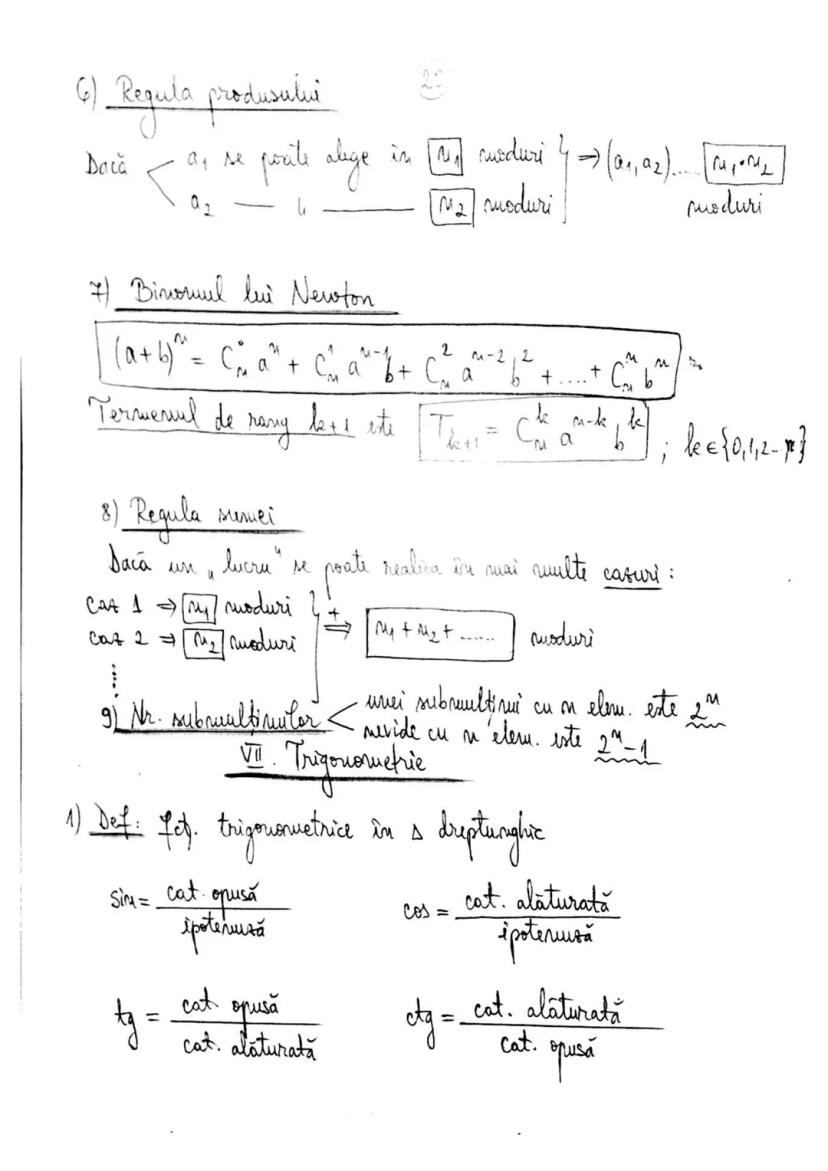 29
6) Regula produsului
Dacă a₁ se poate alege în n₁ moduri } ⇒ (a₁, a₂)..... n₁·n₂
a₂ — 〃 — n₂ moduri moduri
7) Binomul lui Newton
(a+b)ⁿ = Cₙ⁰ aⁿ + Cₙ¹ aⁿ⁻¹b + Cₙ² aⁿ⁻² b² + .... + Cₙⁿ bⁿ
Termenul de rang k+1 este Tₖ₊₁ = Cₙᵏ aⁿ⁻ᵏ bᵏ ; k∈{0,1,2-n}
8) Regula sumei
Dacă un „lucru" se poate realiza în mai multe cazuri :
caz 1 ⇒ n₁ moduri } +⇒ n₁ + n₂ + ...... moduri
caz 2 ⇒ n₂ moduri
⋮
9) Nr. submulțimilor < unei submulțimi cu n elem. este 2ⁿ
nevide cu n elem. este 2ⁿ-1
VII. Trigonometrie
1) Def: Fcț. trigonometrice în Δ dreptunghic
sin = cat. opusă / ipotenuză cos = cat. alăturată / ipotenuză
tg = cat. opusă / cat. alăturată ctg = cat. alăturată / cat. opusă